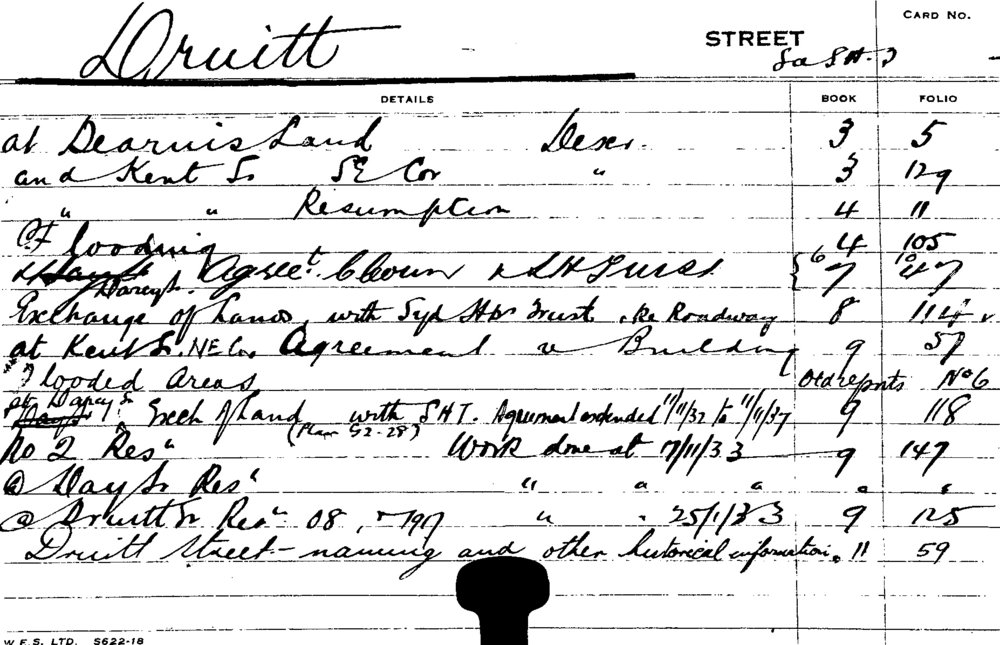 CARD NO.
Druitt STREET
DETAILS BOOK FOLIO
at Dearnis Land 3 5
and Kent St SE Cor " 3 129
" " Resumption 4 11
Flooding 4 105
Agreet. Crown & SH Trust 6 7 47
Darcy St.
Exchange of Lands, with Syd Hbr Trust . Re Roadway 8 114
at Kent St. NE Cor Agreement Building 9 57
" Flooded Areas Old reports No 6
at Darcy St
Exch of Land with SHT. Agreement extended 11/11/32 to 11/11/37 9 118
(Plan S2-28?)
No 2 Res" Work done at 17/11/33 9 147
@ Day St Res" " " " " "
@ Druitt St Res" 08, 1917 " " 25/1/33 9 125
Druitt Street - naming and other historical information. 11 59
W.E.S. LTD. S622-18